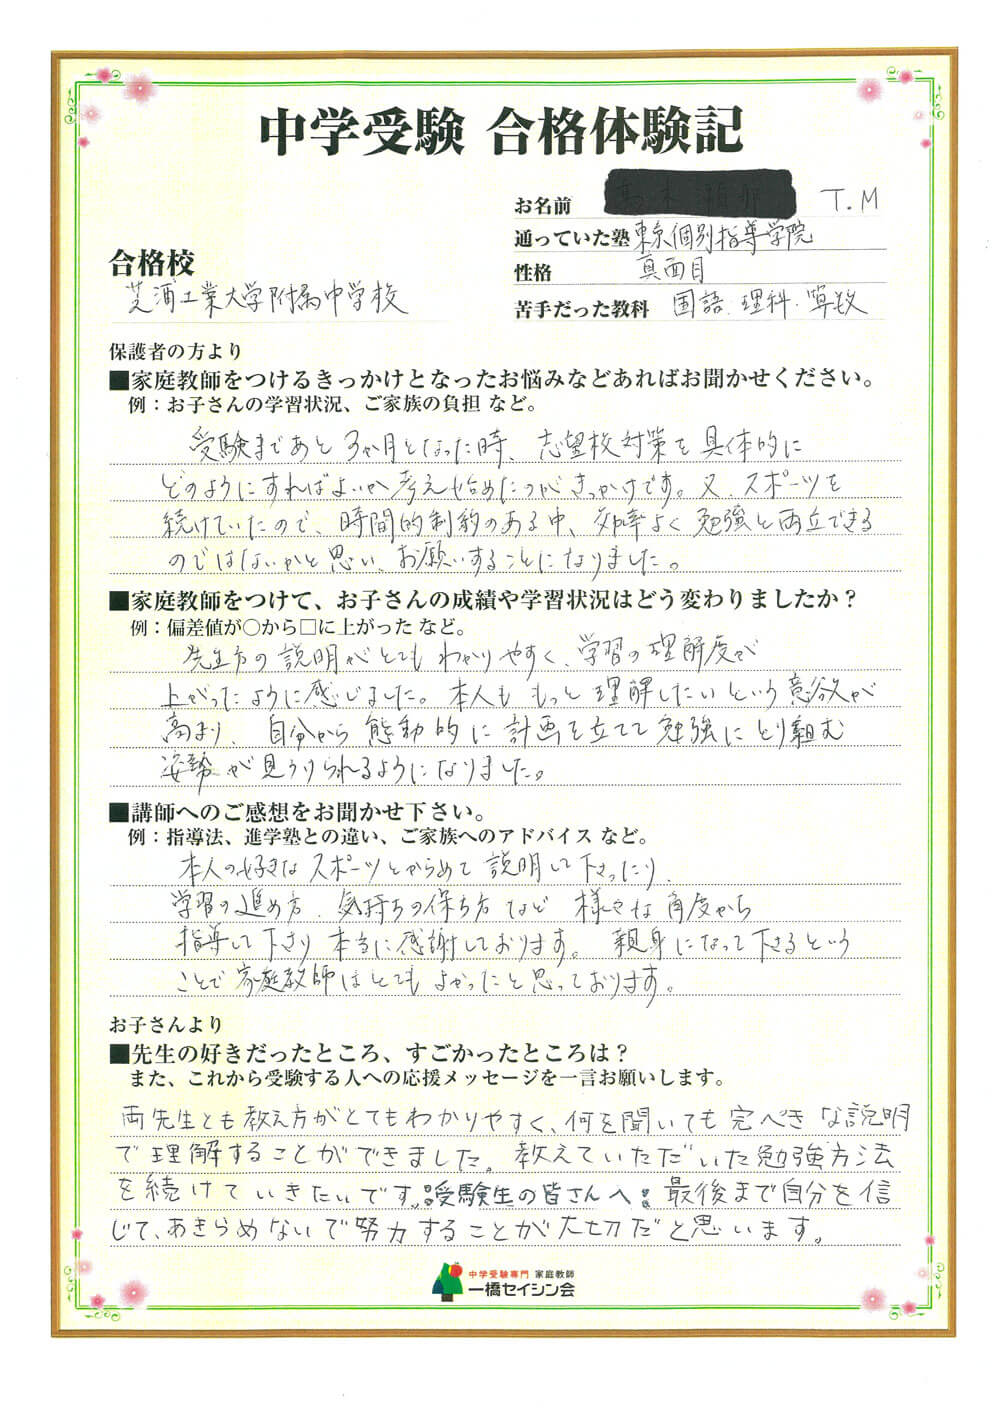 中学受験 合格体験記
お名前 T.M
通っていた塾 東京個別指導学院
合格校
性格 真面目
芝浦工業大学附属中学校
苦手だった教科 国語.理科.算数
保護者の方より
■家庭教師をつけるきっかけとなったお悩みなどあればお聞かせください。
例：お子さんの学習状況、ご家族の負担 など。
受験まであと3か月となった時、志望校対策を具体的に
どのようにすればよいか考え始めたのがきっかけです。又、スポーツを
続けていたので、時間的制約のある中、効率よく勉強と両立できる
のではないかと思い、お願いすることになりました。
■家庭教師をつけて、お子さんの成績や学習状況はどう変わりましたか？
例：偏差値が○から□に上がった など。
先生方の説明がとてもわかりやすく、学習の理解度が
上がったように感じました。本人ももっと理解したいという意欲が
高まり、自分から能動的に計画を立てて勉強にとり組む
姿勢が見うけられるようになりました。
■講師へのご感想をお聞かせ下さい。
例：指導法、進学塾との違い、ご家族へのアドバイス など。
本人の好きなスポーツとからめて説明して下さったり、
学習の進め方、気持ちの保ち方など様々な角度から
指導して下さり本当に感謝しております。親身になって下さるという
ことで家庭教師はとてもよかったと思っております。
お子さんより
■先生の好きだったところ、すごかったところは？
また、これから受験する人への応援メッセージを一言お願いします。
両先生とも教え方がとてもわかりやすく、何を聞いても完ぺきな説明
で理解することができました。教えていただいた勉強方法
を続けていきたいです。受験生の皆さんへ 最後まで自分を信
じて、あきらめないで努力することが大切だと思います。
中学受験専門 家庭教師
一橋セイシン会